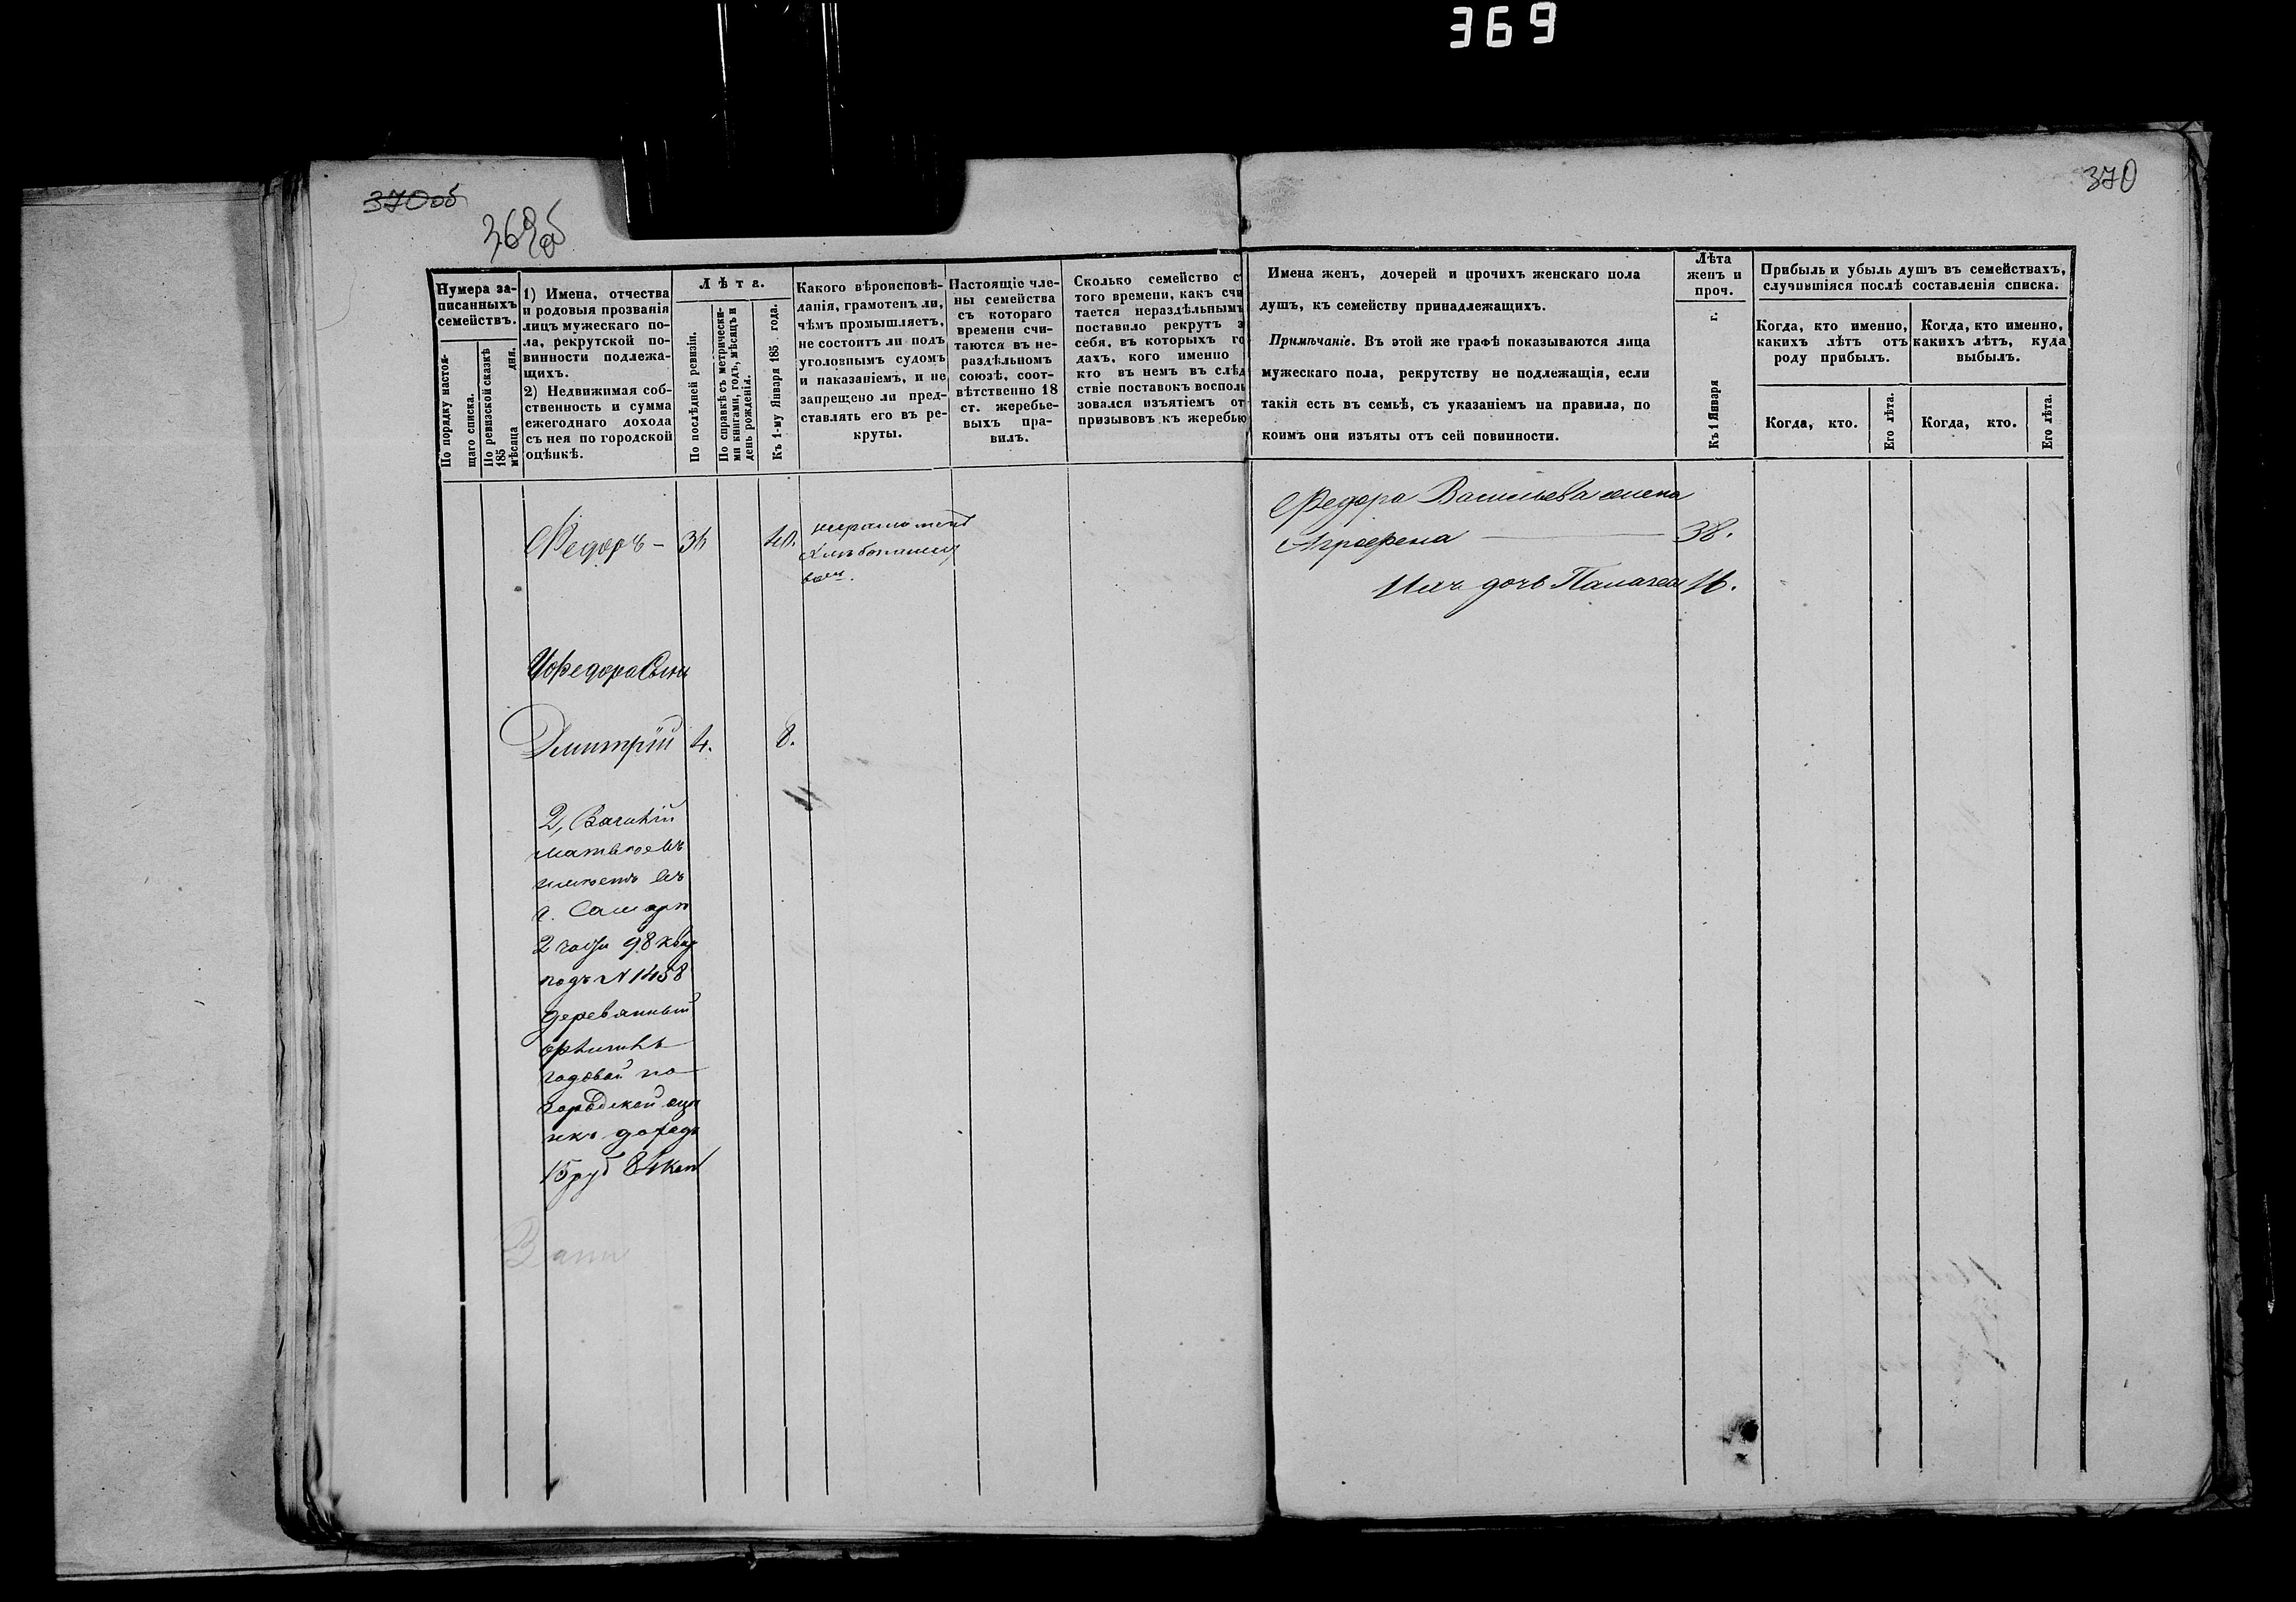 369
370об
369об
370
Нумера за-
писанныхъ
семействъ.
По порядку настоя-
щаго списка.
По ревизской сказкѣ
185 мѣсяца дня.
1) Имена, отчества
и родовыя прозванія
лицъ мужескаго по-
ла, рекрутской по-
винности подлежа-
щихъ.
2) Недвижимая соб-
ственность и сумма
ежегоднаго дохода
съ нея по городской
оцѣнкѣ.
Лѣта.
По послѣдней ревизіи.
По справкѣ съ метрически-
ми книгами, годъ, мѣсяцъ и
день рожденія.
Къ 1-му Января 185 года.
Какого вѣроисповѣ-
данія, грамотенъ ли,
чѣмъ промышляетъ,
не состоитъ ли подъ
уголовнымъ судомъ
и наказаніемъ, и не
запрещено ли пред-
ставлять его въ ре-
круты.
Настоящіе чле-
ны семейства
съ котораго
времени счи-
таются въ не-
раздѣльномъ
союзѣ, соот-
вѣтственно 18
ст. жеребье-
выхъ пра-
вилъ.
Сколько семейство с
того времени, какъ счи
тается нераздѣльнымъ
поставило рекрутъ з
себя, въ которыхъ го
дахъ, кого именно
кто въ немъ въ слѣд
ствіе поставокъ восполь
зовался изъятіемъ от
призывовъ къ жеребью
Имена женъ, дочерей и прочихъ женскаго пола
душъ, къ семейству принадлежащихъ.
Примѣчаніе. Въ этой же графѣ показываются лица
мужескаго пола, рекрутству не подлежащія, если
такія есть въ семьѣ, съ указаніемъ на правила, по
коимъ они изъяты отъ сей повинности.
Лѣта
женъ и
проч.
Къ 1 Января г.
Прибыль и убыль душъ въ семействахъ,
случившіяся послѣ составленія списка.
Когда, кто именно,
какихъ лѣтъ отъ
роду прибылъ.
Когда, кто именно,
какихъ лѣтъ, куда
выбылъ.
Когда, кто.
Его лѣта.
Когда, кто.
Его лѣта.
Федоръ – 36 40. неграмотенъ
хлѣбопашест
вом.
У Федора Сынъ
Дмитрій 4. 8.
2, Василій
Матвѣевъ
имѣетъ въ
г. Самарѣ
2 части 98 квар
подъ N 1458
деревянный
флигель
годовой по
городской оцѣ
нкѣ доходъ
15 руб 84 коп
Федора Васильева жена
Аграфена 38.
Ихъ дочь Палагея 16.